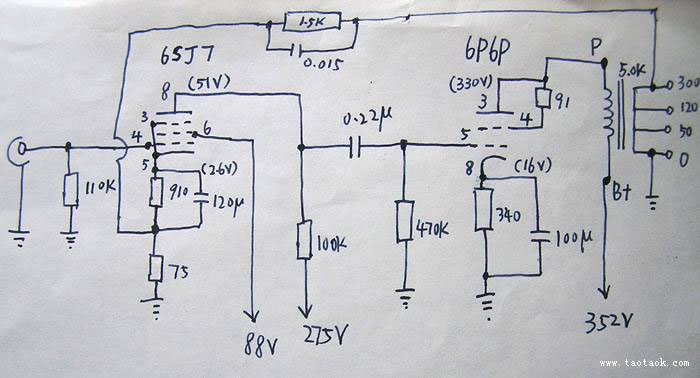 1.5K
0.015
6SJ7
6P6P
P
5.0K
8 (51V)
(330V)
3
91
300
120
50
0
3
4
6
0.22μ
5
4
5
(2.6V)
8
(16V)
B+
110K
910
120μ
100K
470K
340
100μ
75
88V
275V
352V
www.taotaok.com